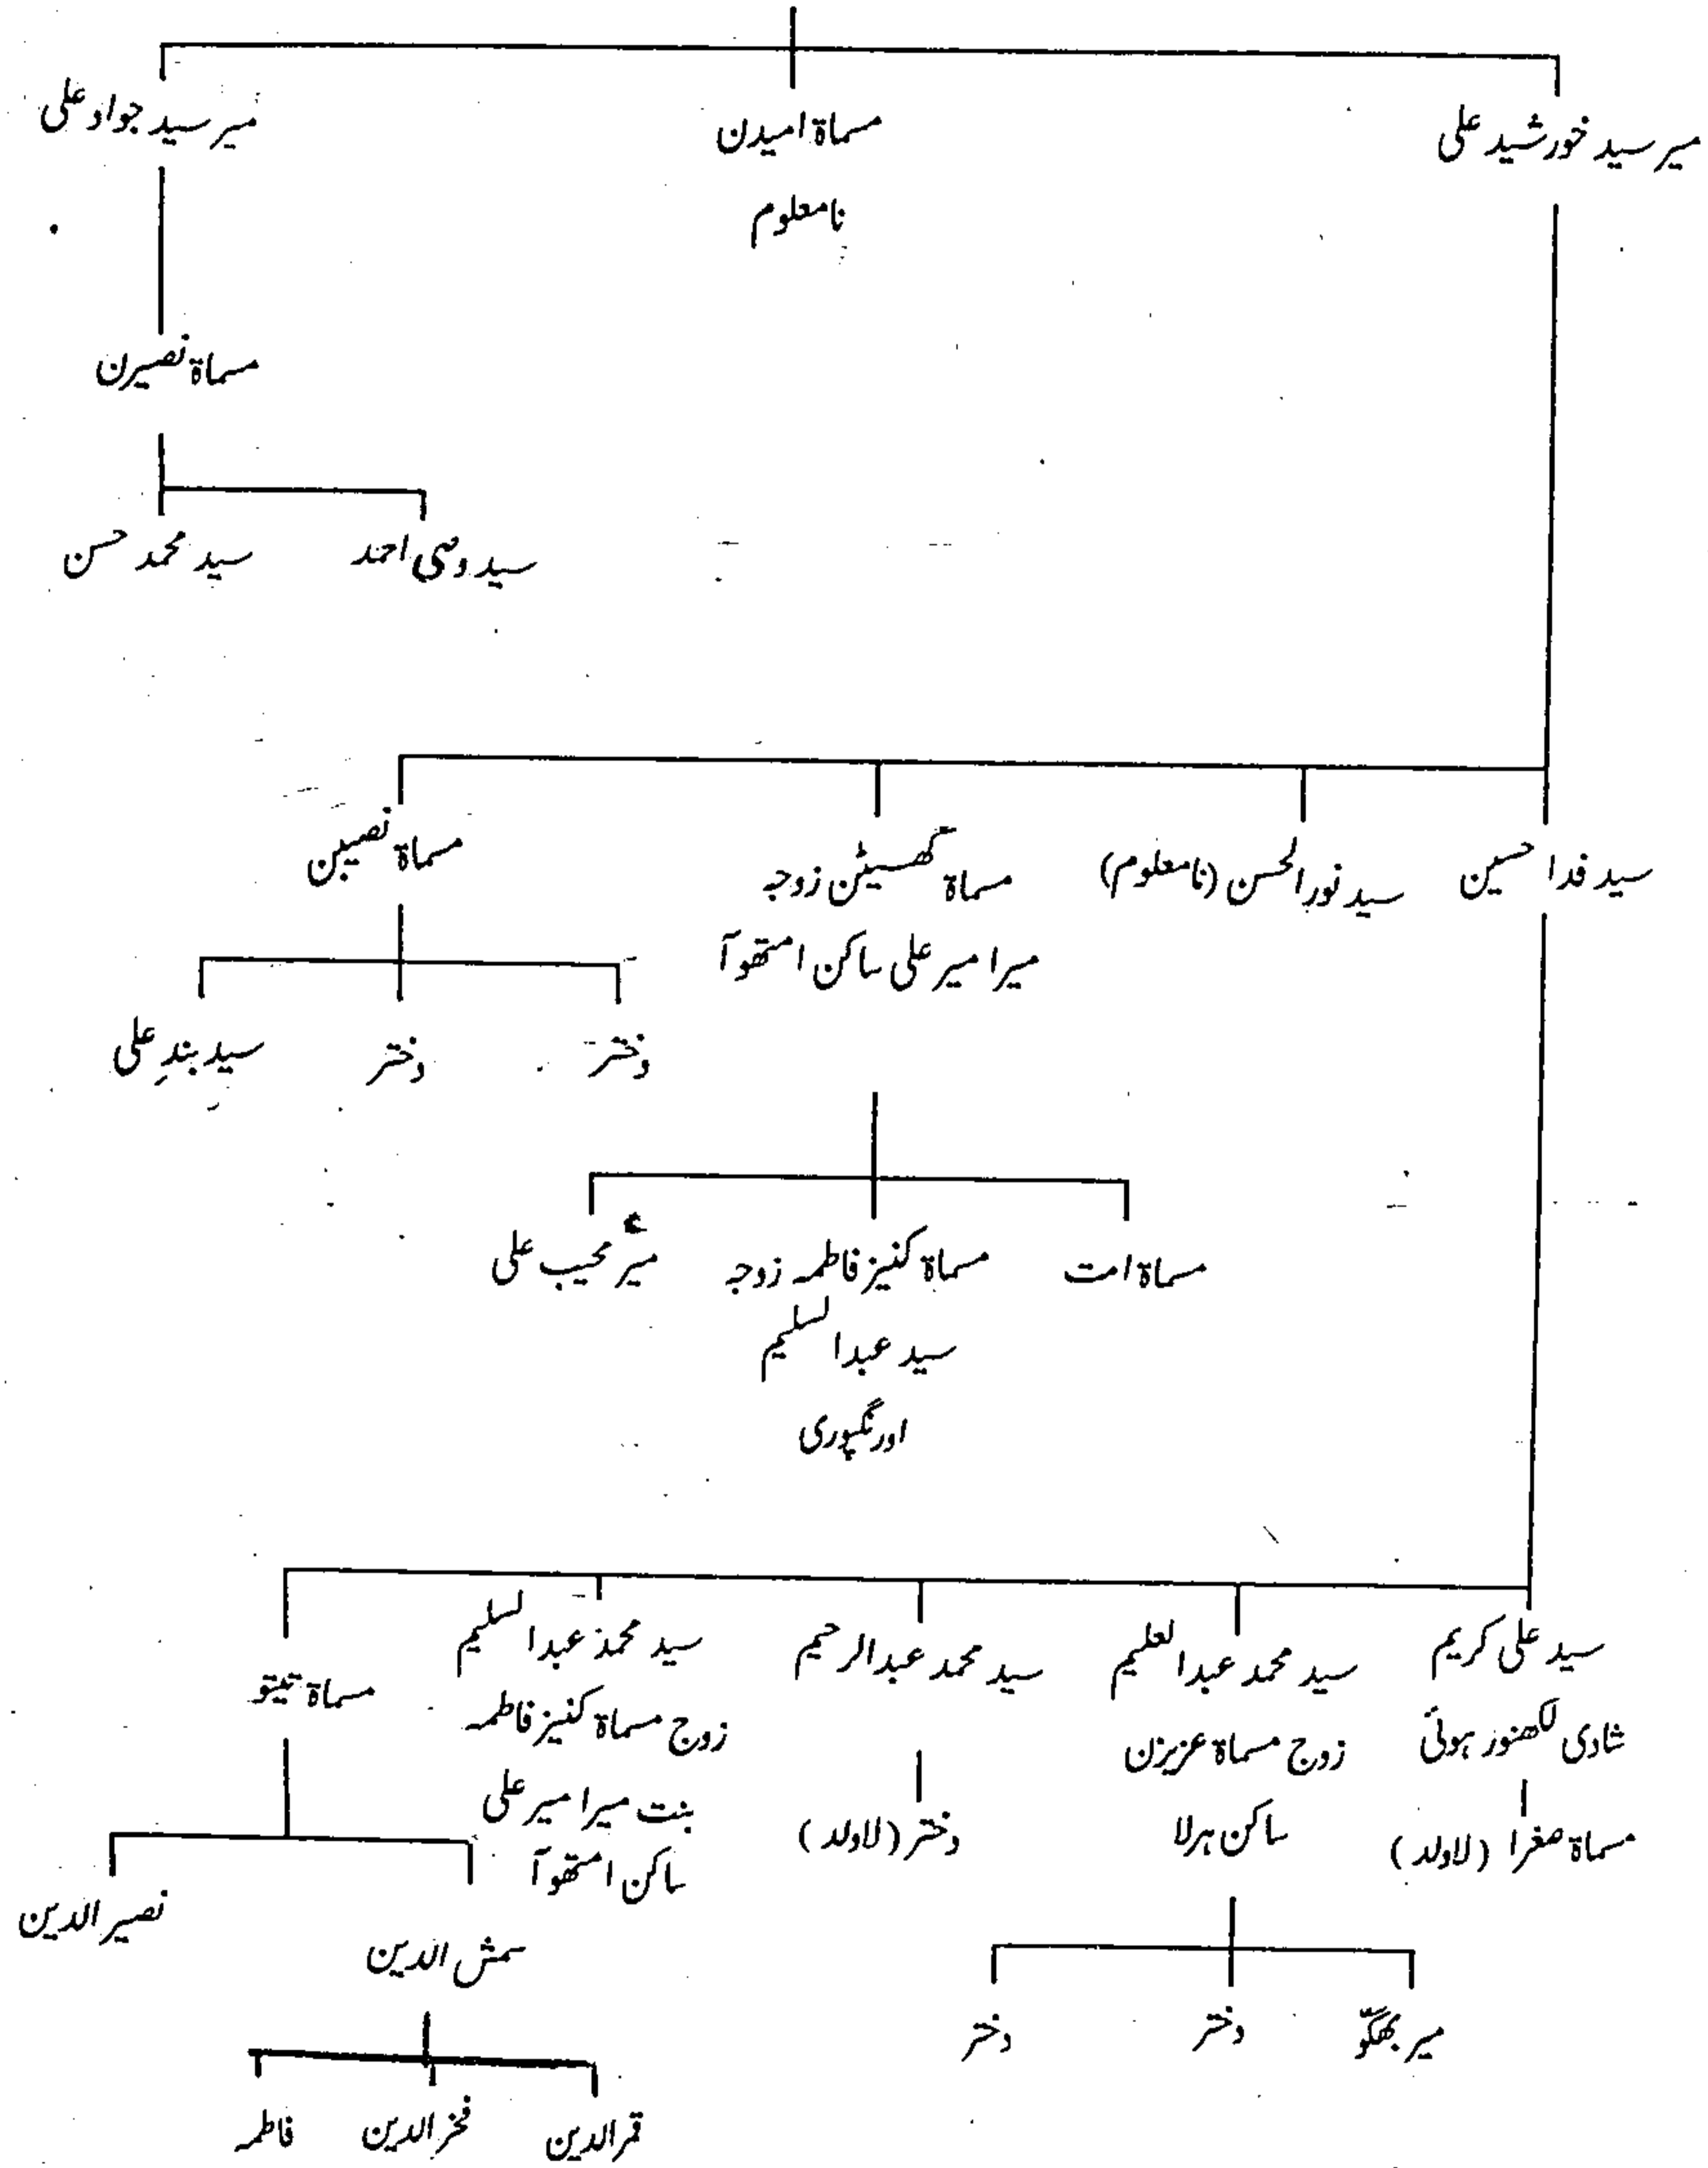 میر سید خورشید علی
مسماۃ امیدن
نامعلوم
میر سید جواد علی
مسماۃ نصیرن
سید وصی احمد
سید محمد حسن
سید فدا حسین
سید نورالحسن (نامعلوم)
مسماۃ گھسیٹن زوجہ
میر امیر علی ساکن امتھوآ
مسماۃ نصیبن
دختر
دختر
سید بندِ علی
مسماۃ امت
مسماۃ کنیز فاطمہ زوجہ
سید عبدالسلیم
اورنگپوری
میر محیب علی
سید علی کریم
شادی لکھنور ہوئی
مسماۃ صغرا (لاولد)
سید محمد عبدالعلیم
زوج مسماۃ عزیزن
ساکن ہرلا
میر بھگوّ
دختر
دختر
سید محمد عبدالرحیم
دختر (لاولد)
سید محمد عبدالسلیم
زوج مسماۃ کنیز فاطمہ
بنت میر امیر علی
ساکن امتھوآ
مسماۃ
سمش الدین
نصیر الدین
قمرالدین
فخرالدین
فاطمہ